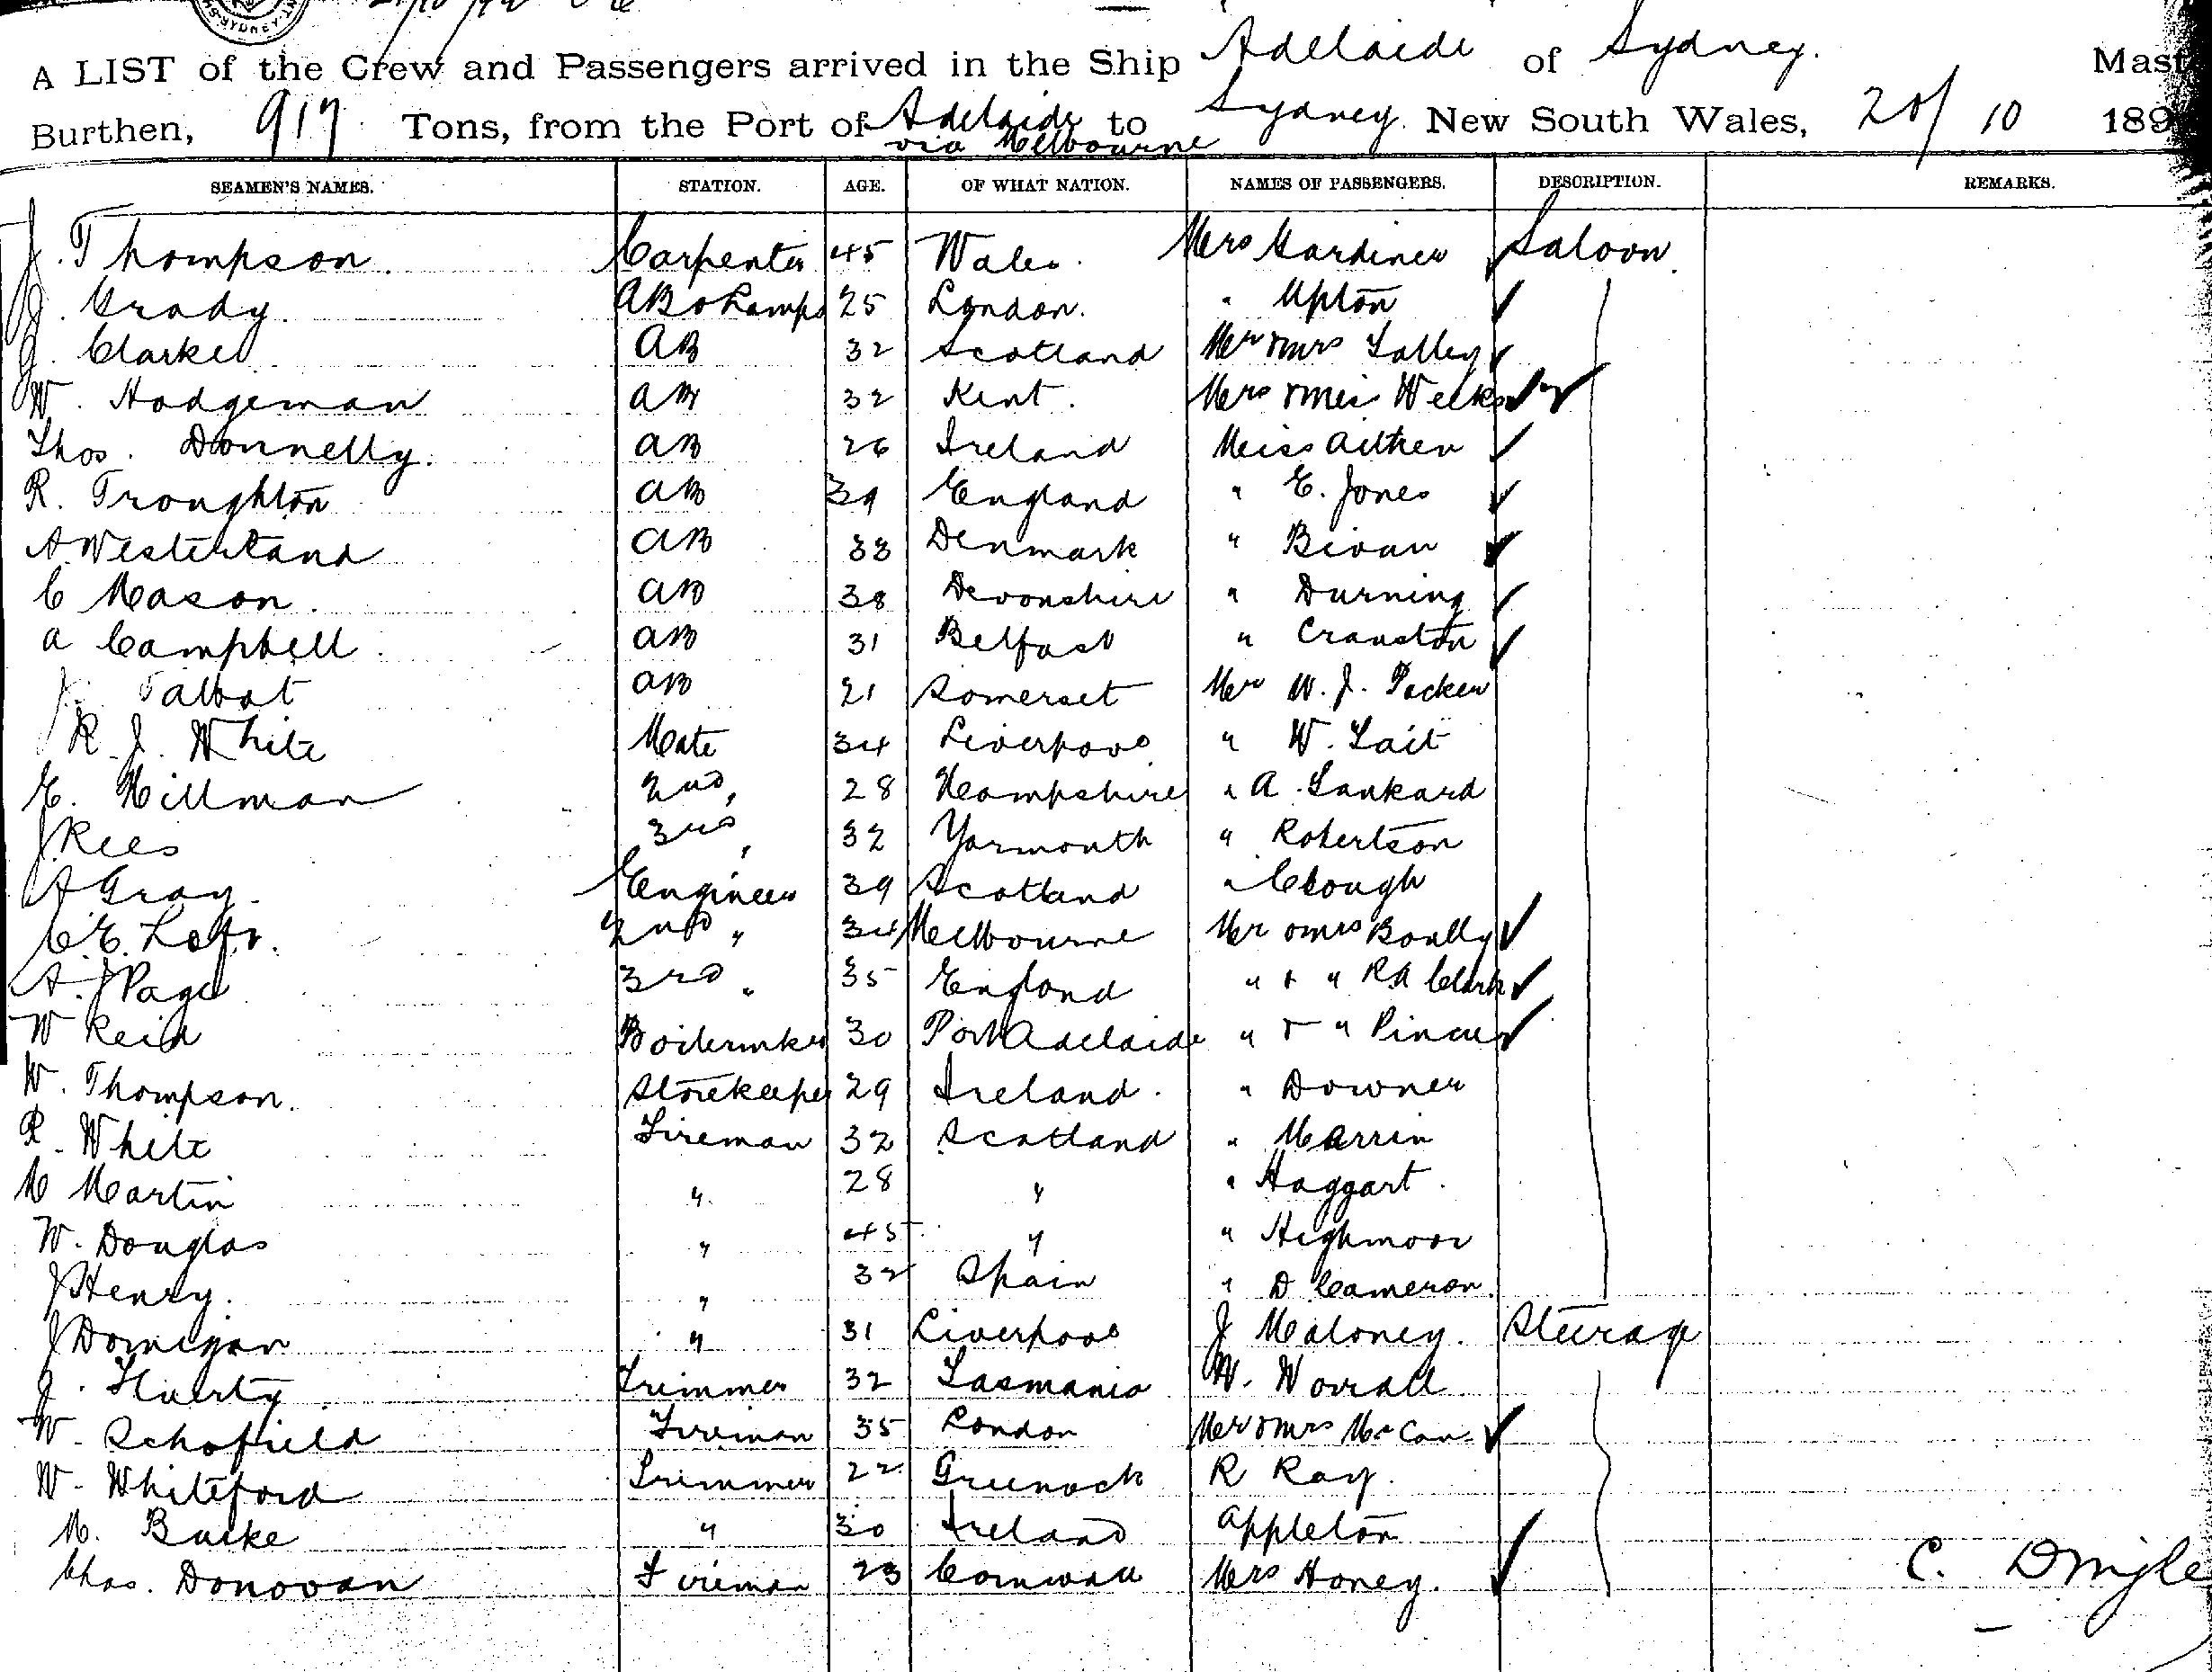 A LIST of the Crew and Passengers arrived in the Ship Adelaide of Sydney.
Burthen, 917 Tons, from the Port of Adelaide via Melbourne to Sydney New South Wales, 20/10 189
SEAMEN'S NAMES. STATION. AGE. OF WHAT NATION. NAMES OF PASSENGERS. DESCRIPTION. REMARKS.
J. Thompson. Carpenter 45 Wales. Mrs Gardiner Saloon
J. Grady. AB & Lamps 25 London. " Upton
J. Clarke AB 32 Scotland Mr & Mrs Lalley
W. Hodgeman AB 32 Kent. Mrs & Miss Weeks
Thos. Donnelly. AB 26 Ireland Miss Aitken
R. Troughton AB 39 England " E. Jones
A Westerland AB 33 Denmark " Bivan
C Mason. AB 38 Devonshire " Durning
A Campbell. AB 31 Belfast " Cranston
Talbot AB 21 Somerset Mr W. J. Packer
R. J. White Mate 34 Liverpool " W. Tait
E. Hillman 2nd " 28 Hampshire " A. Tankard
J Rees 3rd " 32 Yarmouth " Robertson
A Gray. Engineer 39 Scotland " Clough
C. E. 2nd " 34 Melbourne Mr & Mrs
A. J Page 3rd " 35 England " & " RA Clark
W Reid Boilermker 30 Port Adelaide " & "
W. Thompson. Storekeeper 29 Ireland. " Downer
R. White Fireman 32 Scotland " Marrin
M Martin " 28 " " Haggart.
W. Douglas " 45 " " Highmoor
J Henry. " 32 Spain " D Cameron.
J Domigan " 31 Liverpool J Maloney. Steerage
J. Trimmer 32 Tasmania W. Worrall
W. Schofield Fireman 35 London Mr & Mrs McCan
W. Whiteford Trimmer 22 Greenock R Ray.
M. Burke " 30 Ireland Appleton
Chas. Donovan Fireman 23 Cornwall Mrs Honey. C. Dingle